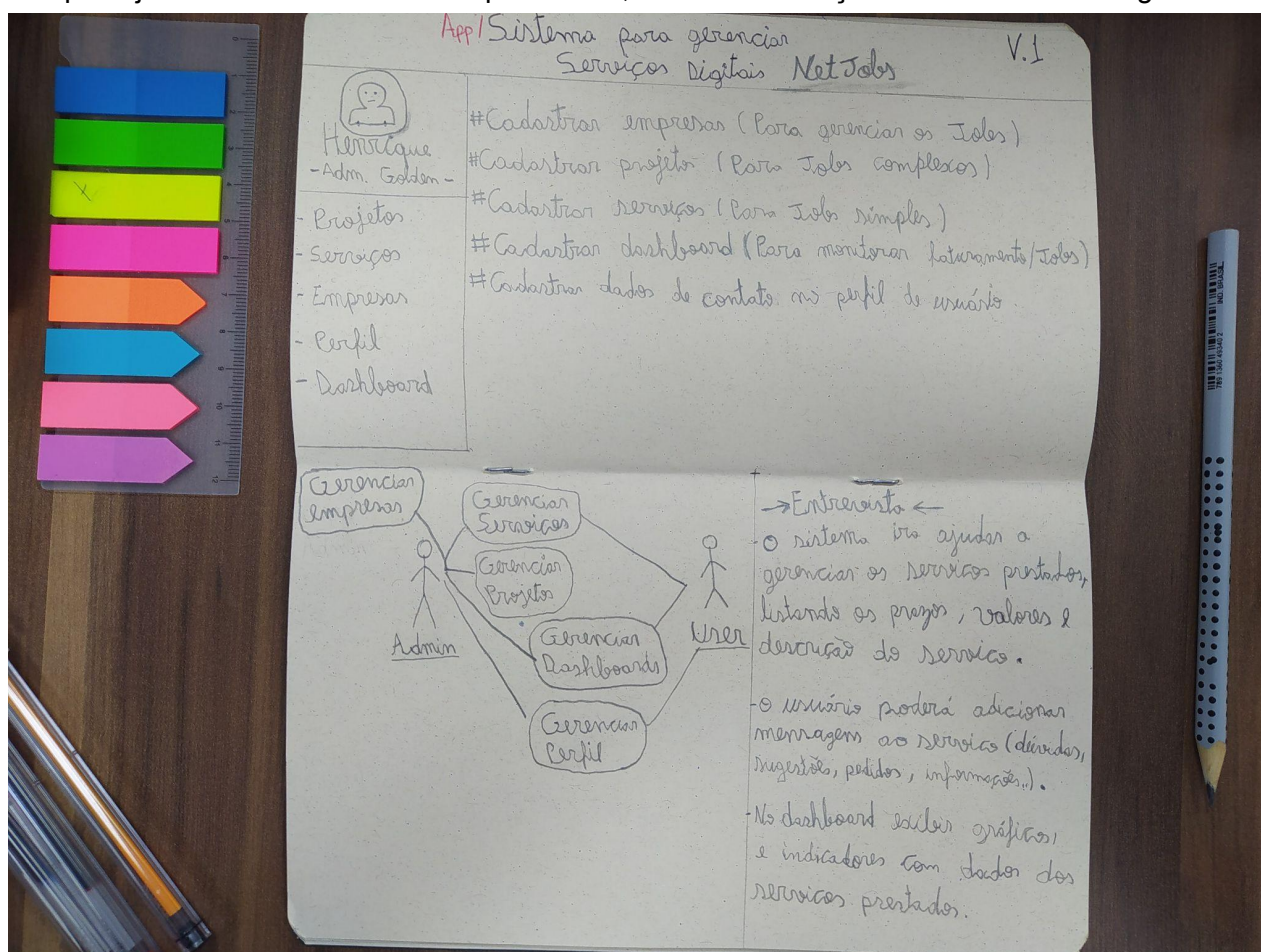 App/Sistema para gerenciar
Serviços Digitais NetJobs
V.1
Henrique
-Adm. Golden-
- Projetos
- Serviços
- Empresas
- Perfil
- Dashboard
#Cadastrar empresas (Para gerenciar os Jobs)
#Cadastrar projeto (Para Jobs complexos)
#Cadastrar serviços (Para Jobs simples)
#Cadastrar dashboard (Para monitorar faturamento/Jobs)
#Cadastrar dados de contato no perfil de usuário.
Gerenciar
empresas
Gerenciar
Serviços
Gerenciar
Projetos
Gerenciar
Dashboards
Gerenciar
Perfil
Admin
User
→Entrevista←
-O sistema ira ajudar a
gerenciar os serviços prestados,
listando os prazos, valores e
descrição do serviço.
-O usuário poderá adicionar
mensagem ao serviço (dúvidas,
sugestões, pedidos, informações..).
-No dashboard exibir gráficos,
e indicadores com dados dos
serviços prestados.
789 1360 493402
IND. BRASIL